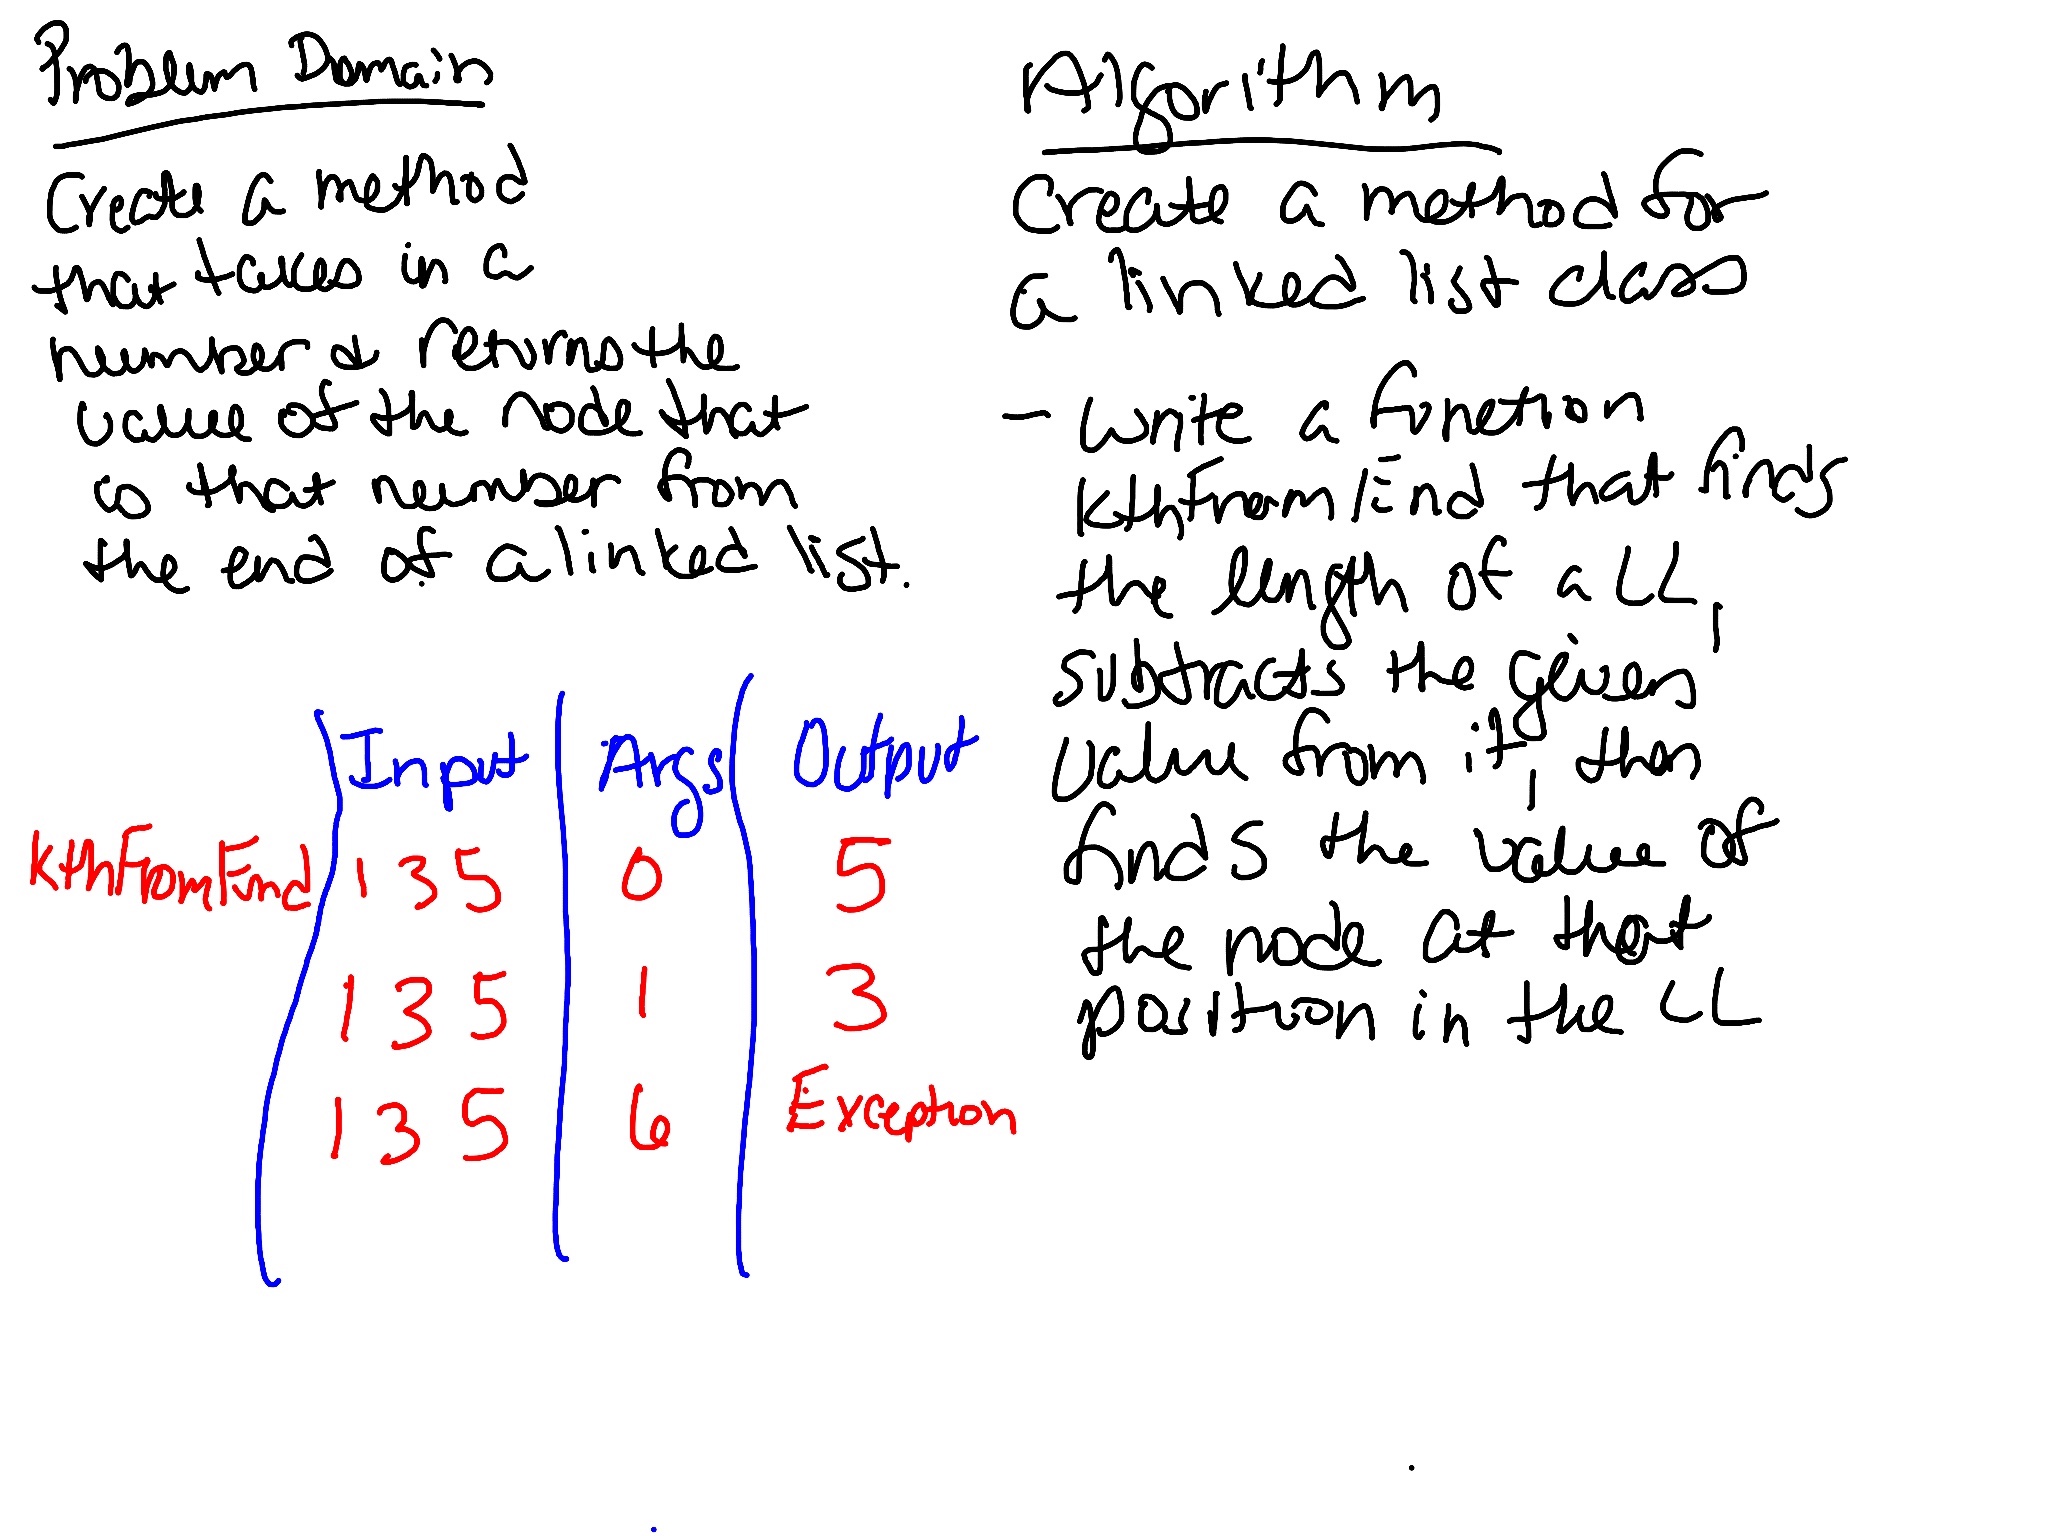 Problem Domain
Create a method
that takes in a
number & returns the
value of the node that
is that number from
the end of a linked list.
Input Args Output
kthFromEnd 1 3 5 0 5
1 3 5 1 3
1 3 5 6 Exception
Algorithm
Create a method for
a linked list class
- Write a function
kthFrom/End that finds
the length of a LL,
subtracts the given
value from it, then
finds the value of
the node at that
position in the LL